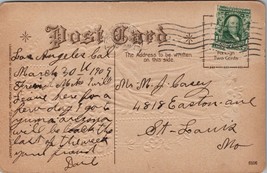 Post Card
The Address to be written
on this side.
Los Angeles Cal
March 30th 1909
Friend
leave here for a
few days I go to
Yuma Arizona
will be back the
last of the week
your friend
Mr M. J. Casey
4818 Easton ave
St. Louis
Mo